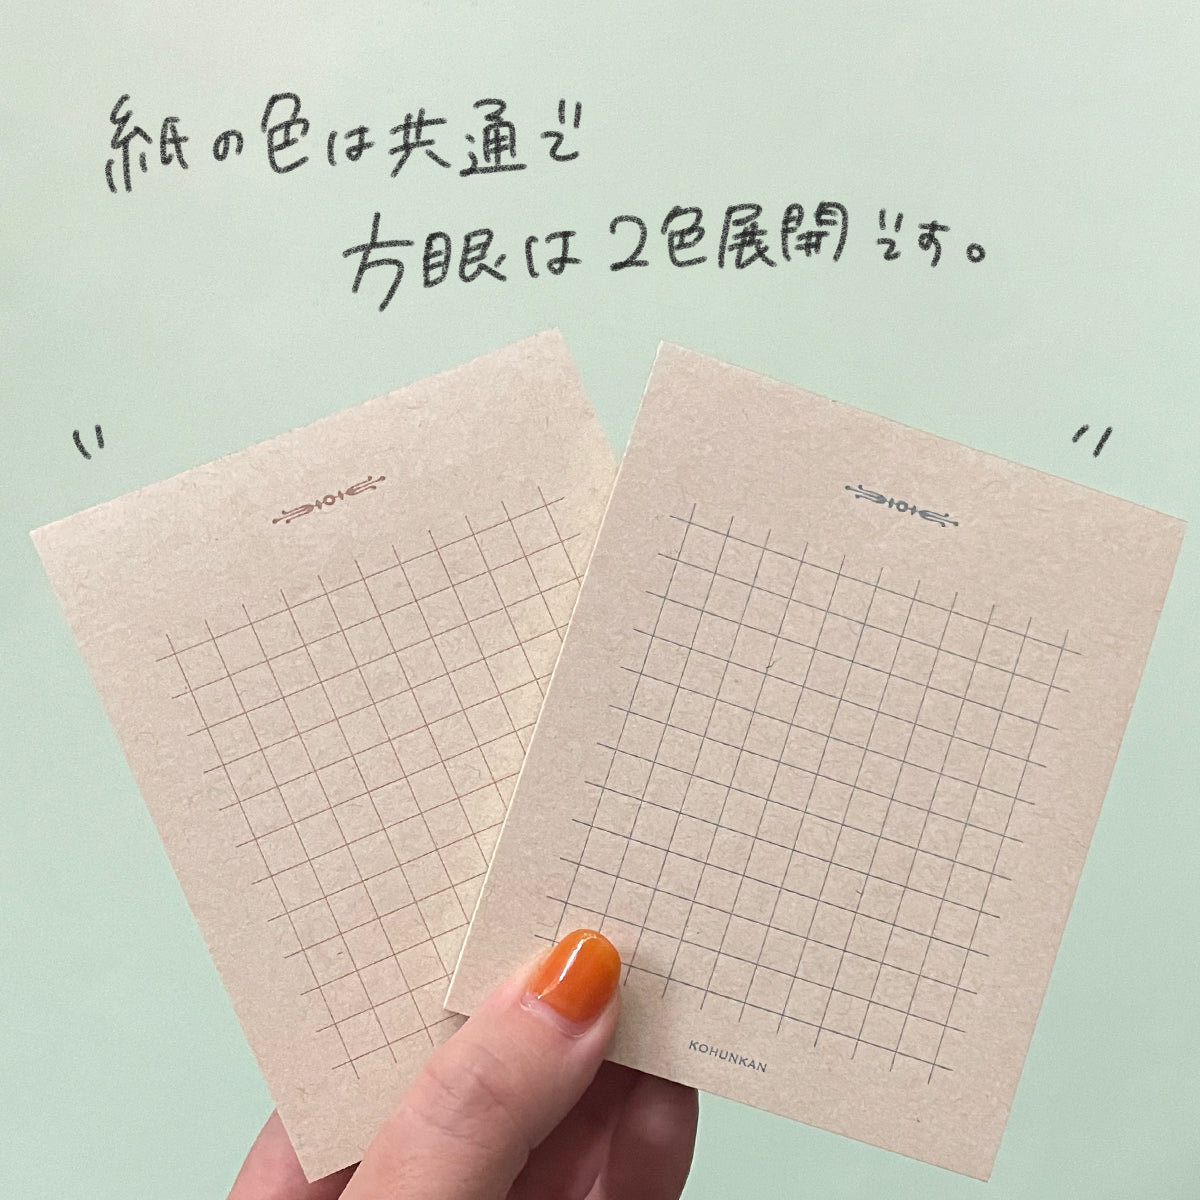 紙の色は共通で
方眼は2色展開です。
KOHUNKAN